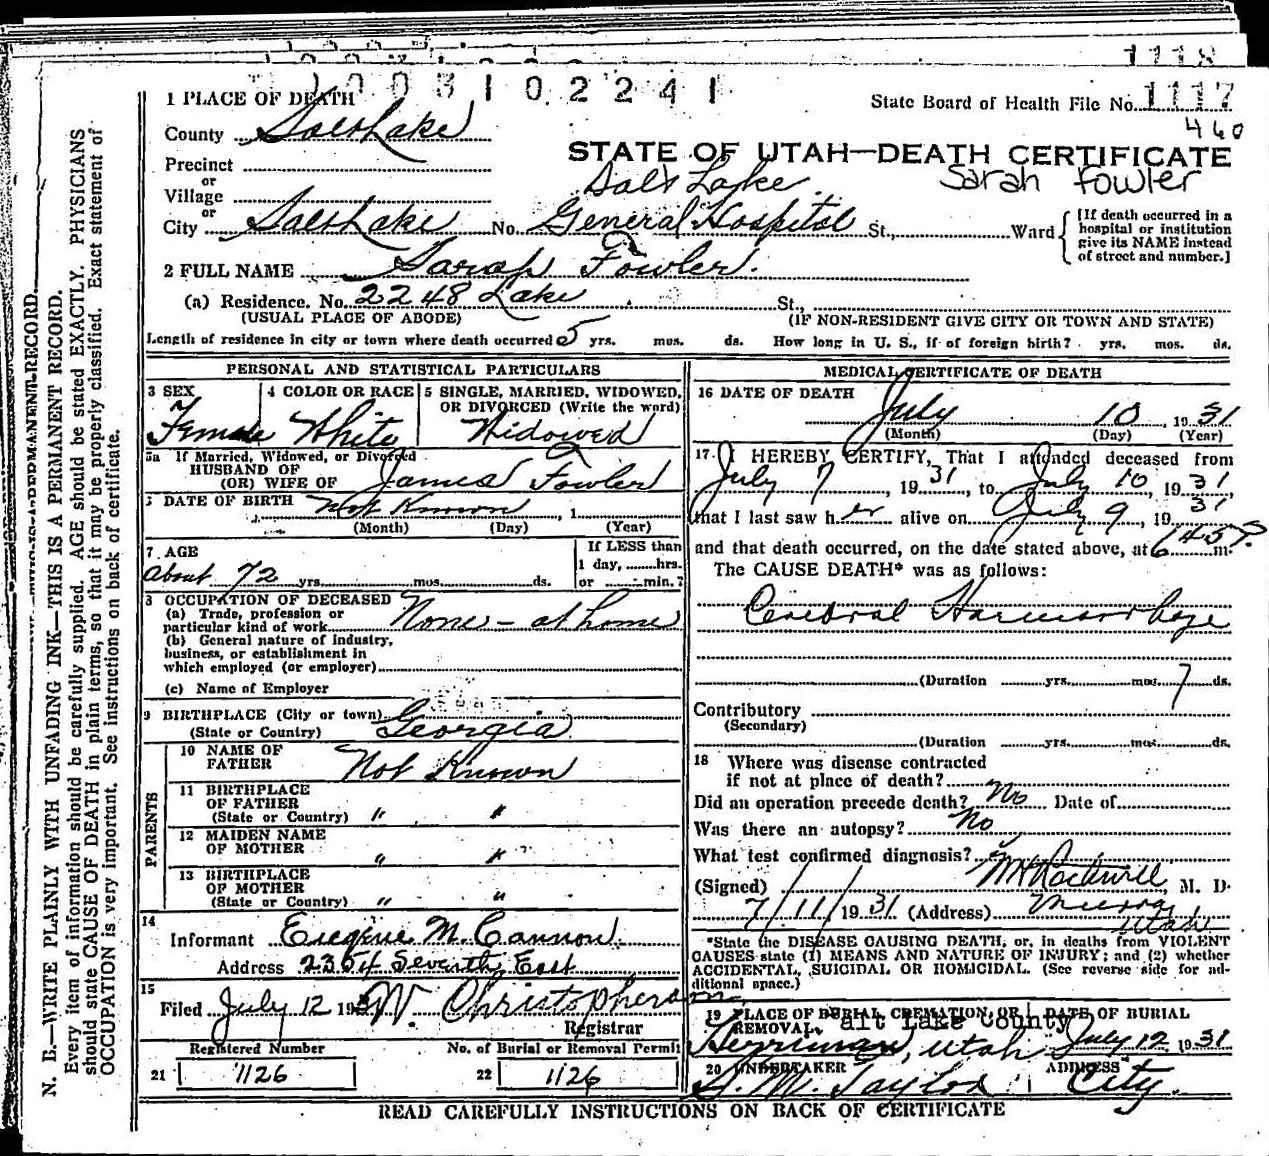 1118
1003102241
1 PLACE OF DEATH
State Board of Health File No. 1117
460
County Salt Lake
STATE OF UTAH—DEATH CERTIFICATE
Precinct
or
Village
Salt Lake
Sarah Fowler
or
City Salt Lake No. General Hospital St., Ward
[If death occurred in a
hospital or institution
give its NAME instead
of street and number.]
2 FULL NAME Sarah Fowler.
(a) Residence. No. 2248 Lake St.,
(USUAL PLACE OF ABODE) (IF NON-RESIDENT GIVE CITY OR TOWN AND STATE)
Length of residence in city or town where death occurred 5 yrs. mos. ds. How long in U. S., if of foreign birth? yrs. mos. ds.
PERSONAL AND STATISTICAL PARTICULARS
3 SEX
Female
4 COLOR OR RACE
White
5 SINGLE, MARRIED, WIDOWED,
OR DIVORCED (Write the word)
Widowed
5a If Married, Widowed, or Divorced
HUSBAND OF
(OR) WIFE OF James Fowler
6 DATE OF BIRTH Not Known, 1
(Month) (Day) (Year)
7 AGE
About 72 yrs. mos. ds.
If LESS than
1 day, hrs.
or min.?
8 OCCUPATION OF DECEASED
(a) Trade, profession or
particular kind of work None - at home
(b) General nature of industry,
business, or establishment in
which employed (or employer)
(c) Name of Employer
9 BIRTHPLACE (City or town)
(State or Country) Georgia
PARENTS
10 NAME OF
FATHER Not Known
11 BIRTHPLACE
OF FATHER
(State or Country) " "
12 MAIDEN NAME
OF MOTHER " "
13 BIRTHPLACE
OF MOTHER
(State or Country) " "
14
Informant Eugene M. Cannon.
Address 2354 Seventh East
15
Filed July 12 1931 W. Christopherson
Registrar
Registered Number
21 1126
No. of Burial or Removal Permit
22 1126
MEDICAL CERTIFICATE OF DEATH
16 DATE OF DEATH
July 10 1931
(Month) (Day) (Year)
17 I HEREBY CERTIFY, That I attended deceased from
July 7, 1931, to July 10, 1931,
that I last saw her alive on July 9, 1931
and that death occurred, on the date stated above, at 645P.m.
The CAUSE DEATH* was as follows:
Cerebral Haemorrhage
(Duration yrs. mos. 7 ds.
Contributory
(Secondary)
(Duration yrs. mos. ds.
18 Where was disease contracted
if not at place of death?
Did an operation precede death? No Date of
Was there an autopsy? No
What test confirmed diagnosis?
(Signed) Rockwell, M. D.
7/11/1931 (Address) Murray
Utah
*State the DISEASE CAUSING DEATH, or, in deaths from VIOLENT
CAUSES state (1) MEANS AND NATURE OF INJURY; and (2) whether
ACCIDENTAL, SUICIDAL OR HOMICIDAL. (See reverse side for ad-
ditional space.)
19 PLACE OF BURIAL, CREMATION, OR
REMOVAL.
alt Lake County
Herriman, Utah
DATE OF BURIAL
July 12 1931
20 UNDERTAKER
S. M. Taylor
ADDRESS
City.
READ CAREFULLY INSTRUCTIONS ON BACK OF CERTIFICATE
N. B.—WRITE PLAINLY WITH UNFADING INK—THIS IS A PERMANENT RECORD.
Every item of information should be carefully supplied. AGE should be stated EXACTLY. PHYSICIANS
should state CAUSE OF DEATH in plain terms, so that it may be properly classified. Exact statement of
OCCUPATION is very important. See instructions on back of certificate.